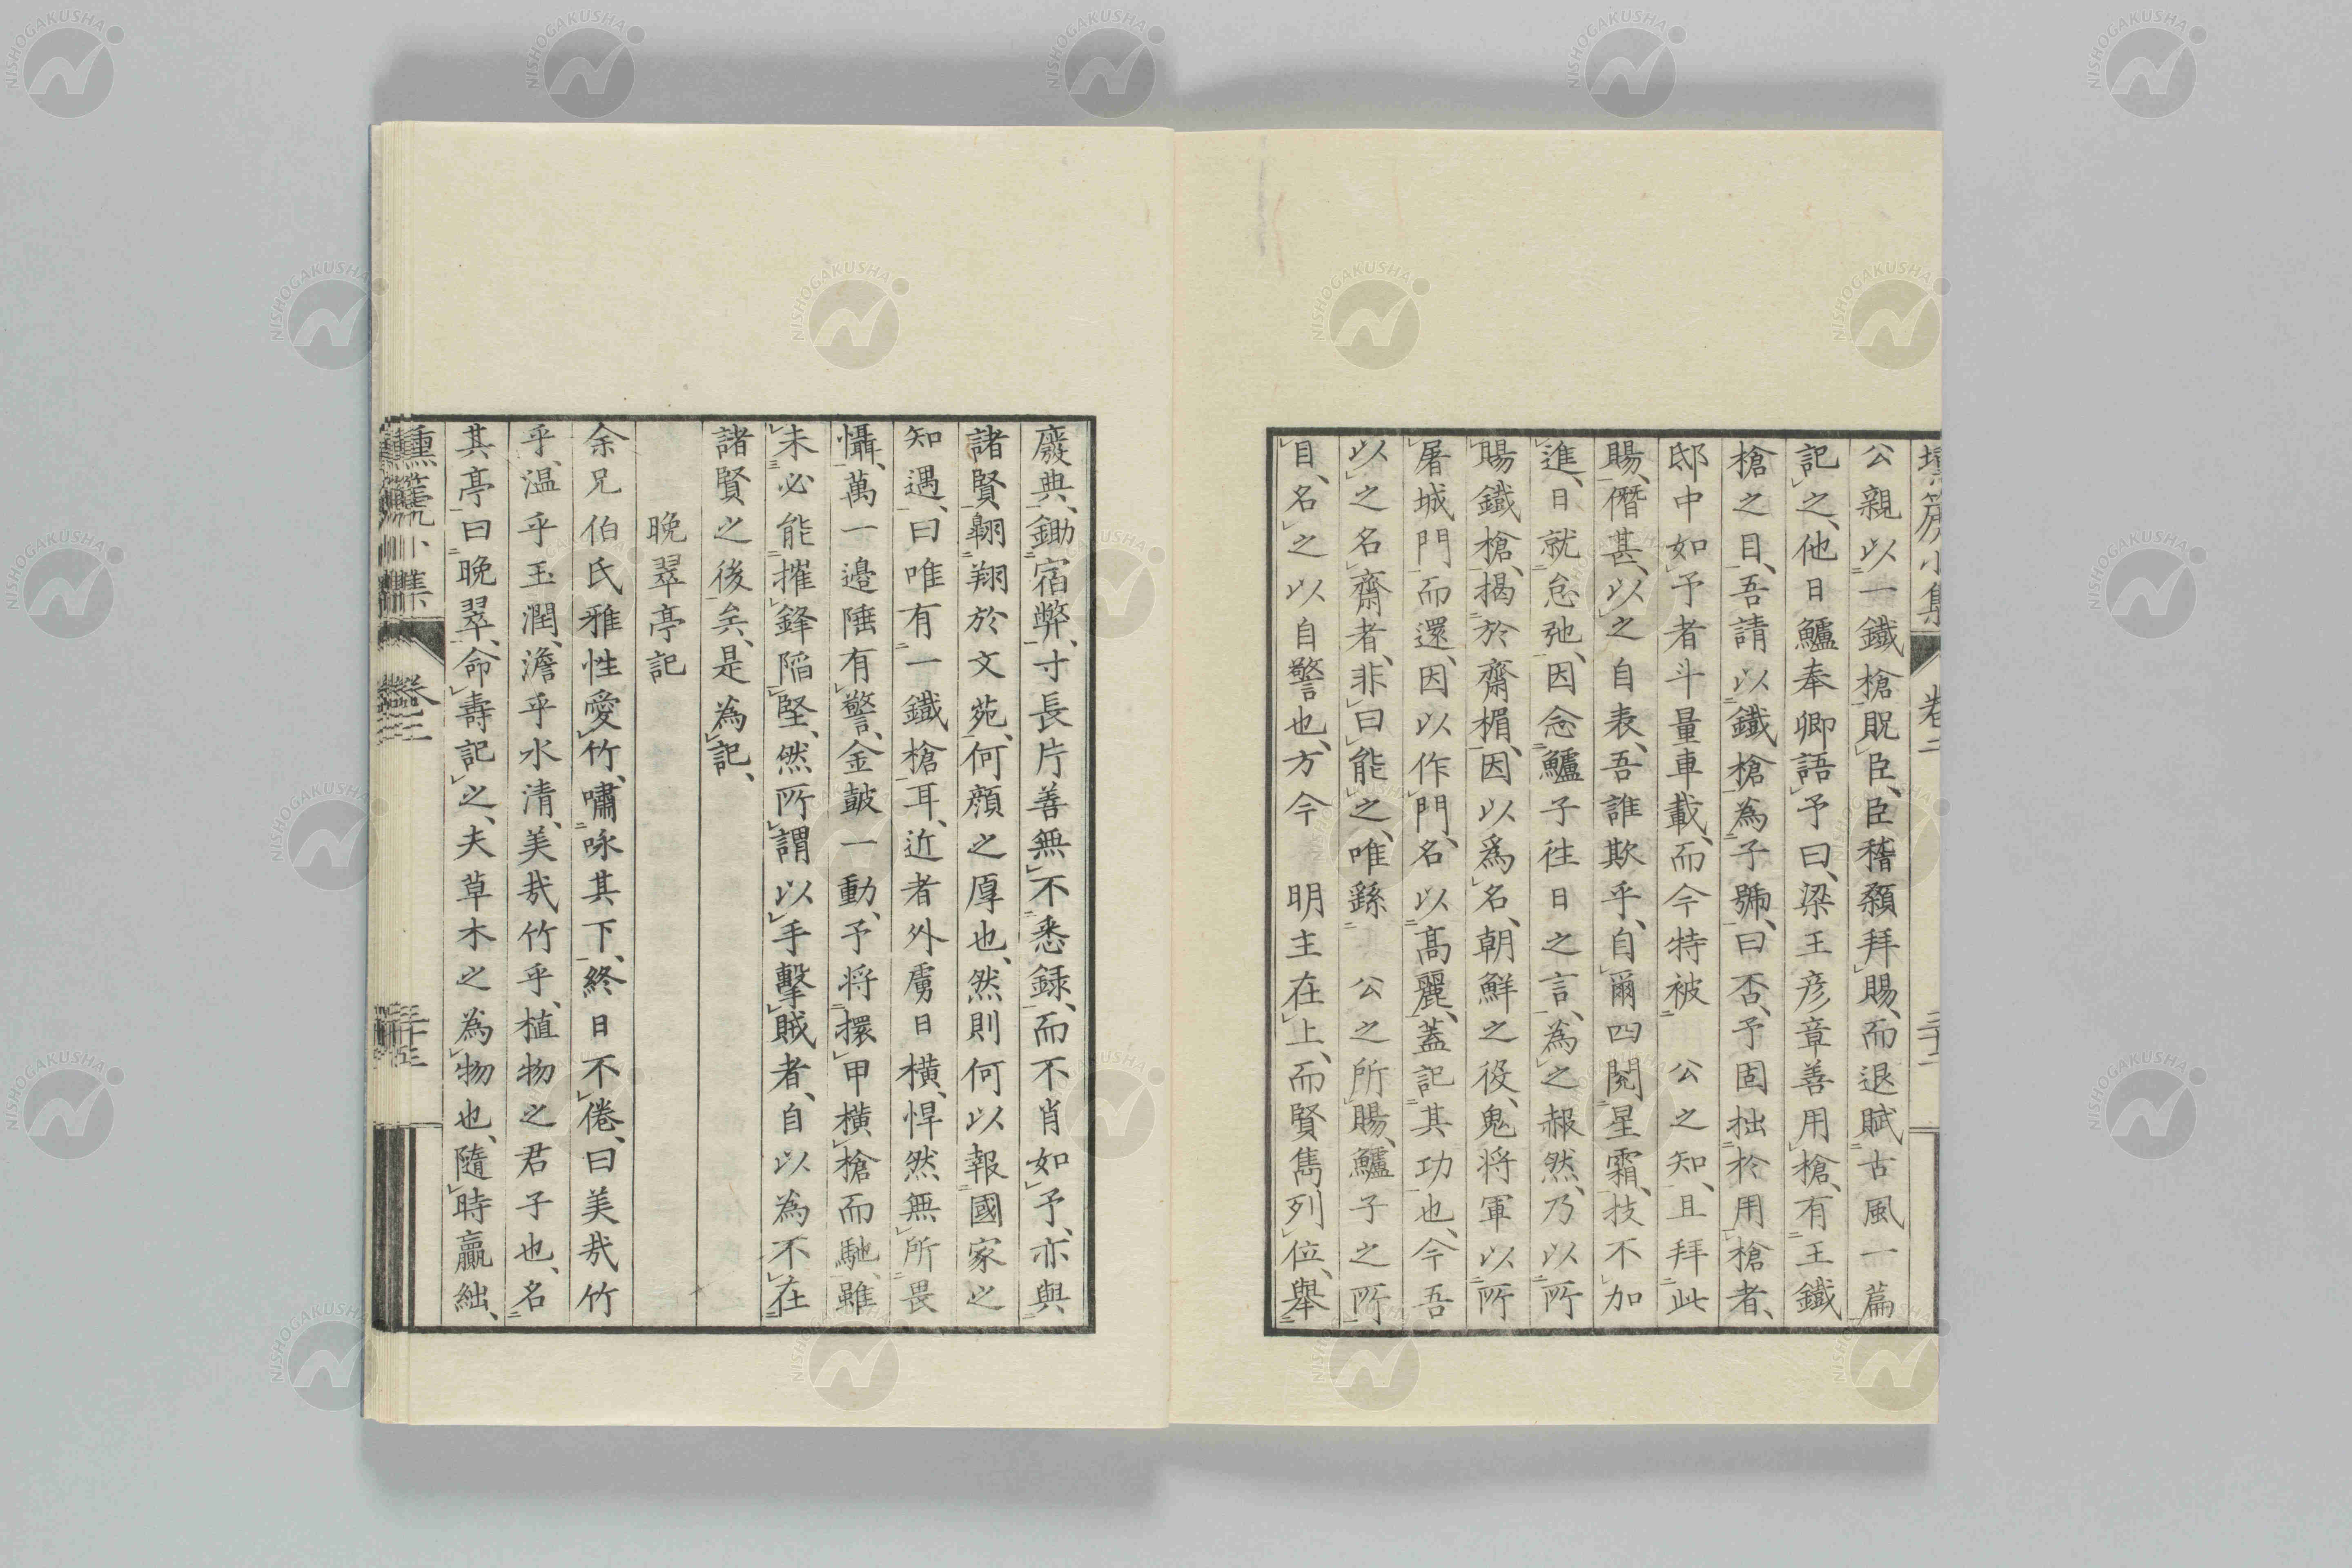 公親以一鐵槍貺臣、臣稽顙拜賜、而退賦古風一篇
記之、他日鱸奉卿語予曰、梁王彦章善用槍、有王鐵
槍之目、吾請以鐵槍為子號、曰否、予固拙於用槍者、
邸中如予者斗量車載、而今特被　公之知、且拜此
賜、僭甚、以之自表、吾誰欺乎、自爾四閱星霜、技不加
進、日就怠弛、因念鱸子往日之言、為之赧然、乃以所
賜鐵槍、揭於齋楣、因以爲名、朝鮮之役、鬼将軍以所
屠城門而還、因以作門、名以高麗、蓋記其功也、今吾
以之名齋者、非曰能之、唯繇　公之所賜、鱸子之所
目、名之以自警也、方今　明主在上、而賢雋列位、舉
廢典、鋤宿弊、寸長片善無不悉録、而不肖如予、亦與
諸賢、翶翔於文苑、何顔之厚也、然則何以報國家之
知遇、曰唯有一鐵槍耳、近者外虜日橫、悍然無所畏
懾、萬一邉陲有警、金皷一動、予将擐甲橫槍而馳、雖
未必能摧鋒陷堅、然所謂以手擊賊者、自以為不在
諸賢之後矣、是為記、
晚翠亭記
余兄伯氏雅性愛竹、嘯咏其下、終日不倦、曰美哉竹
乎、温乎玉潤、澹乎水清、美哉竹乎、植物之君子也、名
其亭曰晚翠、命壽記之、夫草木之為物也、隨時贏絀、
NISHOGAKUSHA